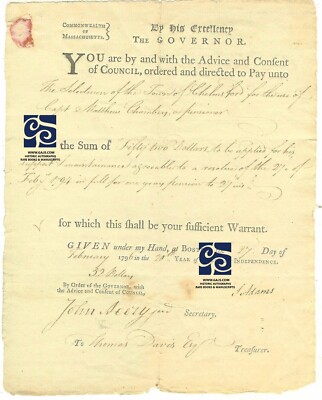 COMMONWEALTH
OF
MASSACHUSETTS.
By His Excellency
THE GOVERNOR.
YOU are by and with the Advice and Consent
of COUNCIL, ordered and directed to Pay unto
The Selectmen of the Town of Chelmsford for the use of
Capt Matthew Chambers, a pensioner
the Sum of Fifty two Dollars to be applied for his
support & maintenance agreeable to a resolve of the 27 of
Feby 1794 in full for one years pension to 27 inst
for which this shall be your sufficient Warrant.
GIVEN under my Hand, at BOSTON 27 Day of
February 1796 in the 20 YEAR OF INDEPENDENCE.
52 Dollars
By Order of the GOVERNOR, with
the Advice and Consent of COUNCIL,
S Adams
John Avery jun Secretary.
To Thomas Davis Esqr Treasurer.
WWW.GAJS.COM
HISTORIC AUTOGRAPHS
RARE BOOKS & MANUSCRIPTS
WWW.GAJS.COM
HISTORIC AUTOGRAPHS
RARE BOOKS & MANUSCRIPTS